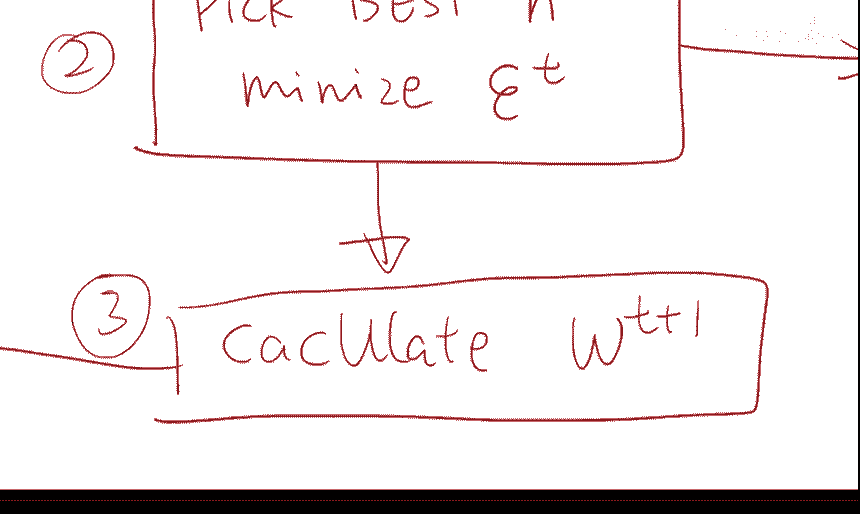 ② Pick Best h
minize ε^t
③ cacUlate w^{t+1}